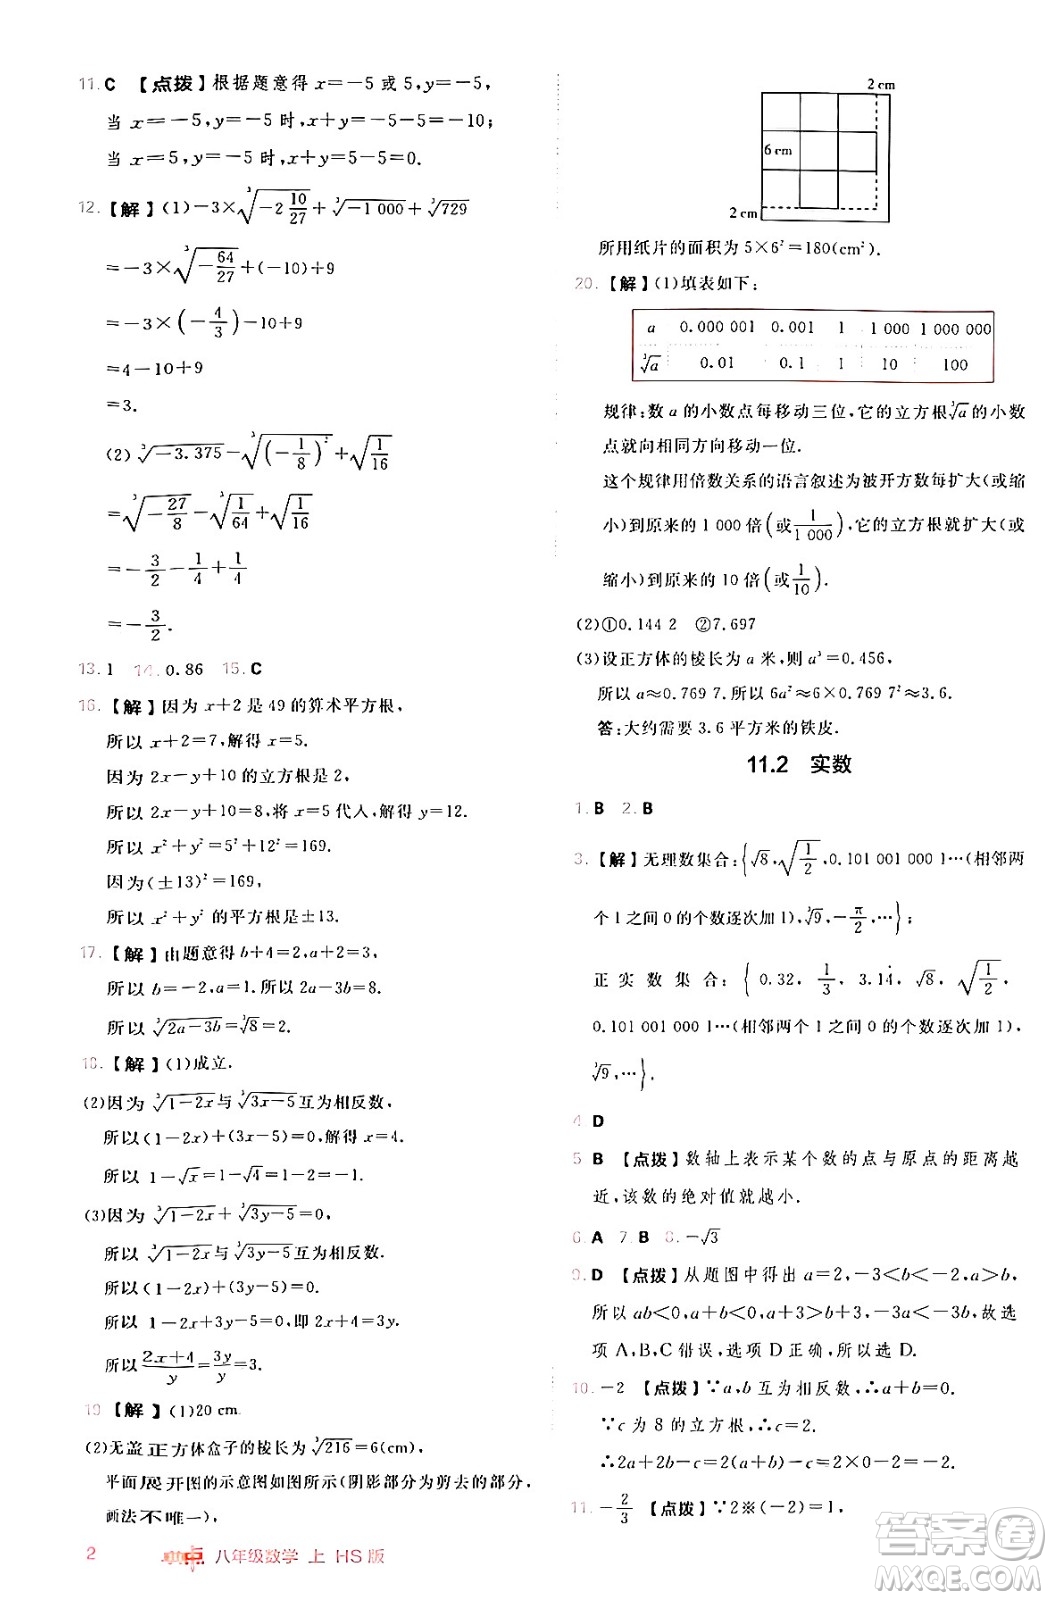 11. C 【点拨】根据题意得 x=-5 或 5, y=-5,
当 x=-5, y=-5 时, x+y=-5-5=-10;
当 x=5, y=-5 时, x+y=5-5=0.
12.【解】(1)-3×∛(-2 10/27)+∛(-1 000)+∛729
=-3×∛(-64/27)+(-10)+9
=-3×(-4/3)-10+9
=4-10+9
=3.
(2)∛(-3.375)-∛((-1/8)²)+√(1/16)
=∛(-27/8)-∛(1/64)+√(1/16)
=-3/2-1/4+1/4
=-3/2.
13. 1 14. 0.86 15. C
16.【解】因为 x+2 是 49 的算术平方根,
所以 x+2=7,解得 x=5.
因为 2x-y+10 的立方根是 2,
所以 2x-y+10=8,将 x=5 代入,解得 y=12.
所以 x²+y²=5²+12²=169.
因为(±13)²=169,
所以 x²+y² 的平方根是±13.
17.【解】由题意得 b+4=2, a+2=3,
所以 b=-2, a=1.所以 2a-3b=8.
所以 ∛(2a-3b)=∛8=2.
18.【解】(1)成立.
(2)因为 ∛(1-2x)与∛(3x-5)互为相反数,
所以(1-2x)+(3x-5)=0,解得 x=4.
所以 1-√x=1-√4=1-2=-1.
(3)因为 ∛(1-2x)+∛(3y-5)=0,
所以 ∛(1-2x)与∛(3y-5)互为相反数.
所以(1-2x)+(3y-5)=0.
所以 1-2x+3y-5=0,即 2x+4=3y.
所以 (2x+4)/y=3y/y=3.
19 【解】(1)20 cm.
(2)无盖正方体盒子的棱长为∛216=6(cm),
平面展开图的示意图如图所示(阴影部分为剪去的部分,
画法不唯一),
2 点 八年级数学 上 HS版
2 cm
6 cm
2 cm
所用纸片的面积为 5×6²=180(cm²).
20.【解】(1)填表如下:
a 0.000 001 0.001 1 1 000 1 000 000
∛a 0.01 0.1 1 10 100
规律:数 a 的小数点每移动三位,它的立方根∛a 的小数
点就向相同方向移动一位.
这个规律用倍数关系的语言叙述为被开方数每扩大(或缩
小)到原来的 1 000 倍(或1/1 000),它的立方根就扩大(或
缩小)到原来的 10 倍(或1/10).
(2)①0.144 2 ②7.697
(3)设正方体的棱长为 a 米,则 a³=0.456,
所以 a≈0.769 7.所以 6a²≈6×0.769 7²≈3.6.
答:大约需要 3.6 平方米的铁皮.
11.2 实数
1. B 2. B
3.【解】无理数集合:{√8,√(1/2),0.101 001 000 1…(相邻两
个 1 之间 0 的个数逐次加 1),∛9,-π/2,…};
正实数集合:{0.32,1/3,3.1̇4̇,√8,√(1/2),
0.101 001 000 1…(相邻两个 1 之间 0 的个数逐次加 1),
∛9,…}.
4 D
5 B 【点拨】数轴上表示某个数的点与原点的距离越
近,该数的绝对值就越小.
6. A 7. B 8. -√3
9. D 【点拨】从题图中得出 a=2,-3<b<-2, a>b,
所以 ab<0, a+b<0, a+3>b+3,-3a<-3b,故选
项 A,B,C 错误,选项 D 正确.所以选 D.
10. -2 【点拨】∵a, b 互为相反数,∴a+b=0.
∵c 为 8 的立方根,∴c=2.
∴2a+2b-c=2(a+b)-c=0-2=-2.
11. -2/3 【点拨】∵2※(-2)=1,
答案圈
MXQE.COM